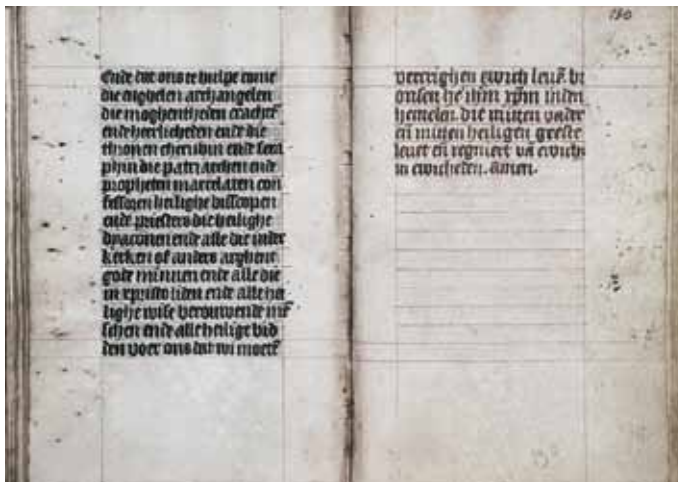 Ende dat ons te hulpe come
die enghelen archangelen
die moghentheden crachtē
ende heerlicheden ende die
thronen cherubin ende sera
phin die patriarchen ende
propheten martelaren con
fessoren heilighe bisscopen
ende priesters die heilighe
dyaconen ende alle die inder
kerken of anders
gode minnen ende alle die
in xpristo liden ende alle hei
lighe wise vrouwende mē
schen ende alle heilige bid
den voer ons dat wi moetē
180
vercrighen ewich leuē. bi
onsen hē ihm xpm inden
hemelen. die mitten vader
eñ mitten heiligen geeste
leuet eñ regniert vā ewich
in ewicheden. amen.